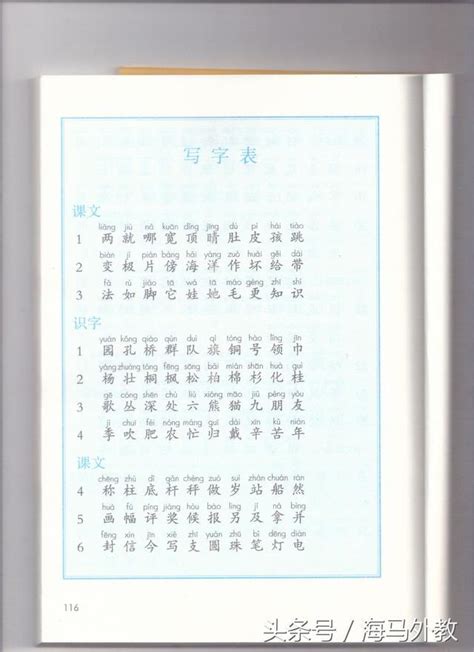 写字表
课文
liǎng jiù nǎ kuān dǐng jīng dù pí hái tiào
1 两就哪宽顶睛肚皮孩跳
biàn jí piàn bàng hǎi yáng zuò huài gěi dài
2 变极片傍海洋作坏给带
fǎ rú jiǎo tā wá tā máo gèng zhī shí
3 法如脚它娃她毛更知识
识字
yuán kǒng qiáo qún duì qí tóng hào lǐng jīn
1 园孔桥群队旗铜号领巾
yáng zhuàng tóng fēng sōng bǎi mián shān huà guì
2 杨壮桐枫松柏棉杉化桂
gē cóng shēn chù liù xióng māo jiǔ péng yǒu
3 歌丛深处六熊猫九朋友
jì chuī féi nóng máng guī dài xīn kǔ nián
4 季吹肥农忙归戴辛苦年
课文
chēng zhù dǐ gǎn chèng zuò suì zhàn chuán rán
4 称柱底杆秤做岁站船然
huà fú píng jiǎng hòu bào lìng jí ná bìng
5 画幅评奖候报另及拿并
fēng xìn jīn xiě zhī yuán zhū bǐ dēng diàn
6 封信今写支圆珠笔灯电
116
头条号 / 海马外教